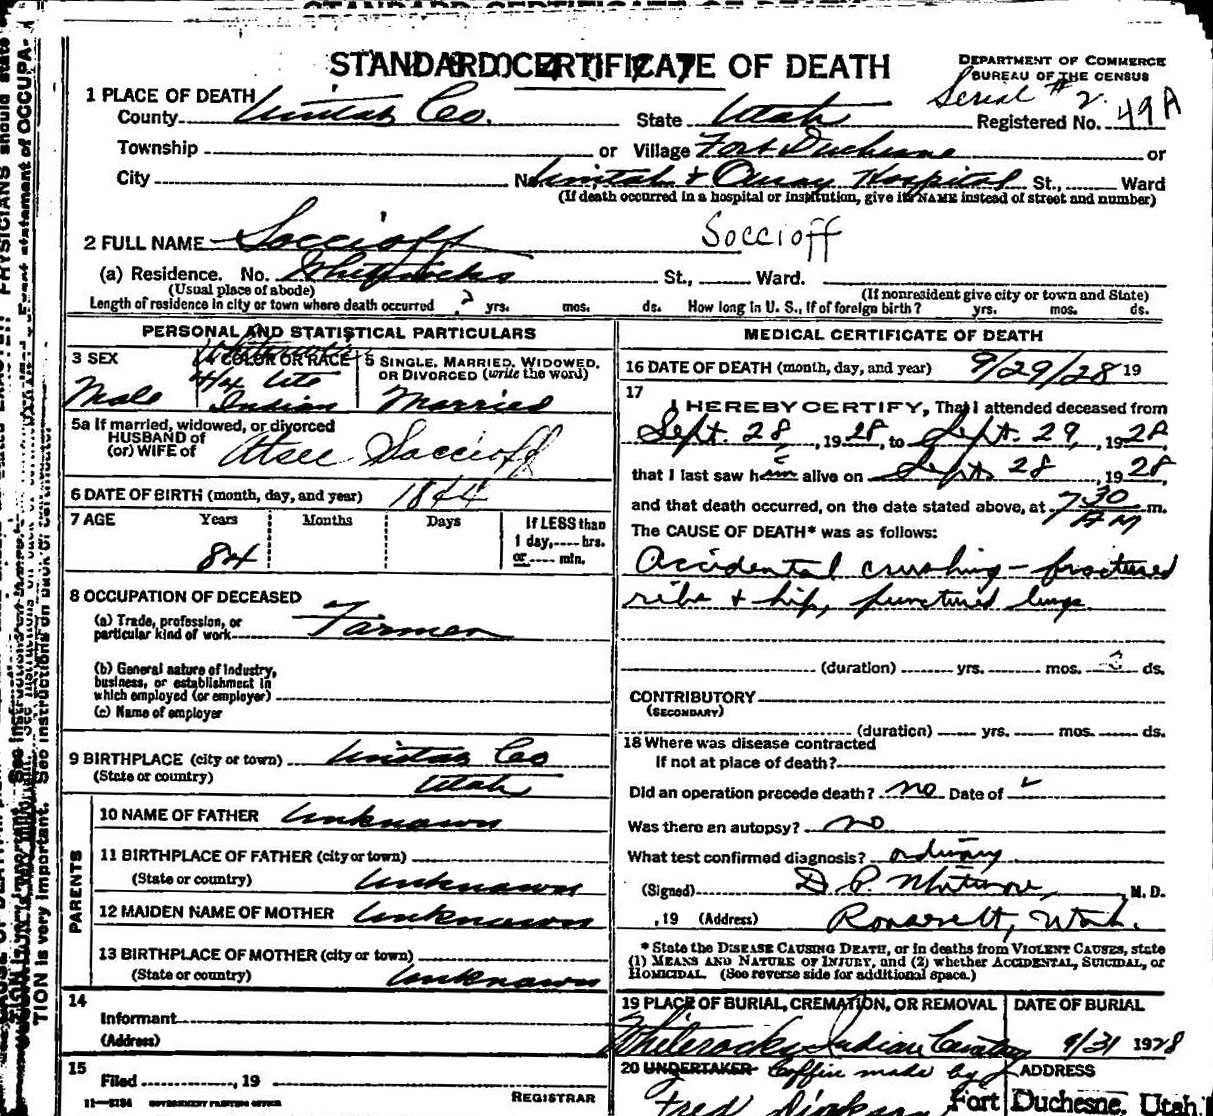 STANDARD CERTIFICATE OF DEATH
DEPARTMENT OF COMMERCE
BUREAU OF THE CENSUS
Serial # 2
1 PLACE OF DEATH
County Uintah Co. State Utah Registered No. 49A
Township or Village Fort Duchesne or
City No. Uintah & Ouray Hospital St., Ward
(If death occurred in a hospital or institution, give its NAME instead of street and number)
2 FULL NAME Soccioff Soccioff
(a) Residence. No. Whiterocks St., Ward.
(Usual place of abode) (If nonresident give city or town and State)
Length of residence in city or town where death occurred ? yrs. mos. ds. How long in U. S., if of foreign birth? yrs. mos. ds.
PERSONAL AND STATISTICAL PARTICULARS
3 SEX
Male
4 COLOR OR RACE
4/4 Ute
Indian
5 SINGLE, MARRIED, WIDOWED,
OR DIVORCED (write the word)
Married
5a If married, widowed, or divorced
HUSBAND of
(or) WIFE of Soccioff
6 DATE OF BIRTH (month, day, and year) 1844
7 AGE Years Months Days If LESS than
1 day, hrs.
or min.
84
8 OCCUPATION OF DECEASED
(a) Trade, profession, or
particular kind of work Farmer
(b) General nature of industry,
business, or establishment in
which employed (or employer)
(c) Name of employer
9 BIRTHPLACE (city or town) Uintah Co
(State or country) Utah
PARENTS
10 NAME OF FATHER Unknown
11 BIRTHPLACE OF FATHER (city or town)
(State or country) Unknown
12 MAIDEN NAME OF MOTHER Unknown
13 BIRTHPLACE OF MOTHER (city or town)
(State or country) Unknown
14
Informant
(Address)
15
Filed , 19
REGISTRAR
GOVERNMENT PRINTING OFFICE
MEDICAL CERTIFICATE OF DEATH
16 DATE OF DEATH (month, day, and year) 9/29/28 19
17
I HEREBY CERTIFY, That I attended deceased from
Sept. 28, 1928, to Sept. 29, 1928,
that I last saw him alive on Sept. 28, 1928,
and that death occurred, on the date stated above, at 7 30 AM m.
The CAUSE OF DEATH* was as follows:
Accidental crushing - fractured
ribs & hip, punctured lungs
(duration) yrs. mos. ds.
CONTRIBUTORY
(SECONDARY)
(duration) yrs. mos. ds.
18 Where was disease contracted
If not at place of death?
Did an operation precede death? no Date of
Was there an autopsy? no
What test confirmed diagnosis? ordinary
(Signed) D. P. Whitmore, M. D.
, 19 (Address) Roosevelt, Utah.
* State the DISEASE CAUSING DEATH, or in deaths from VIOLENT CAUSES, state
(1) MEANS AND NATURE OF INJURY, and (2) whether ACCIDENTAL, SUICIDAL, or
HOMICIDAL. (See reverse side for additional space.)
19 PLACE OF BURIAL, CREMATION, OR REMOVAL
Whiterocks Indian Cemetery
DATE OF BURIAL
9/31 1928
20 UNDERTAKER Coffin made by
Fred
ADDRESS
Fort Duchesne, Utah.
TION is very important. See instructions on back of certificate.